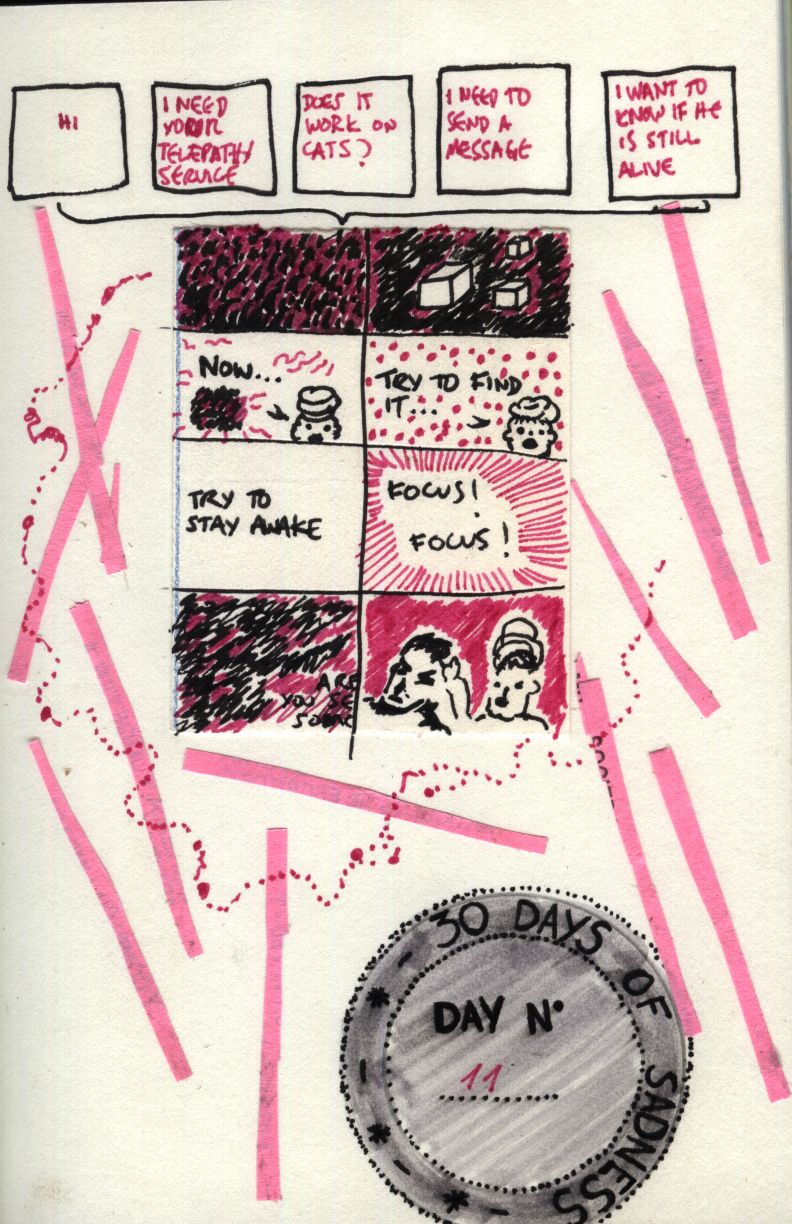 HI
I NEED
YOUR
TELEPATHY
SERVICE
DOES IT
WORK ON
CATS?
I NEED TO
SEND A
MESSAGE
I WANT TO
KNOW IF HE
IS STILL
ALIVE
NOW...
TRY TO FIND
IT...
TRY TO
STAY AWAKE
FOCUS!
FOCUS!
ARE
YOU SE
30 DAYS OF SADNESS
DAY N°
11